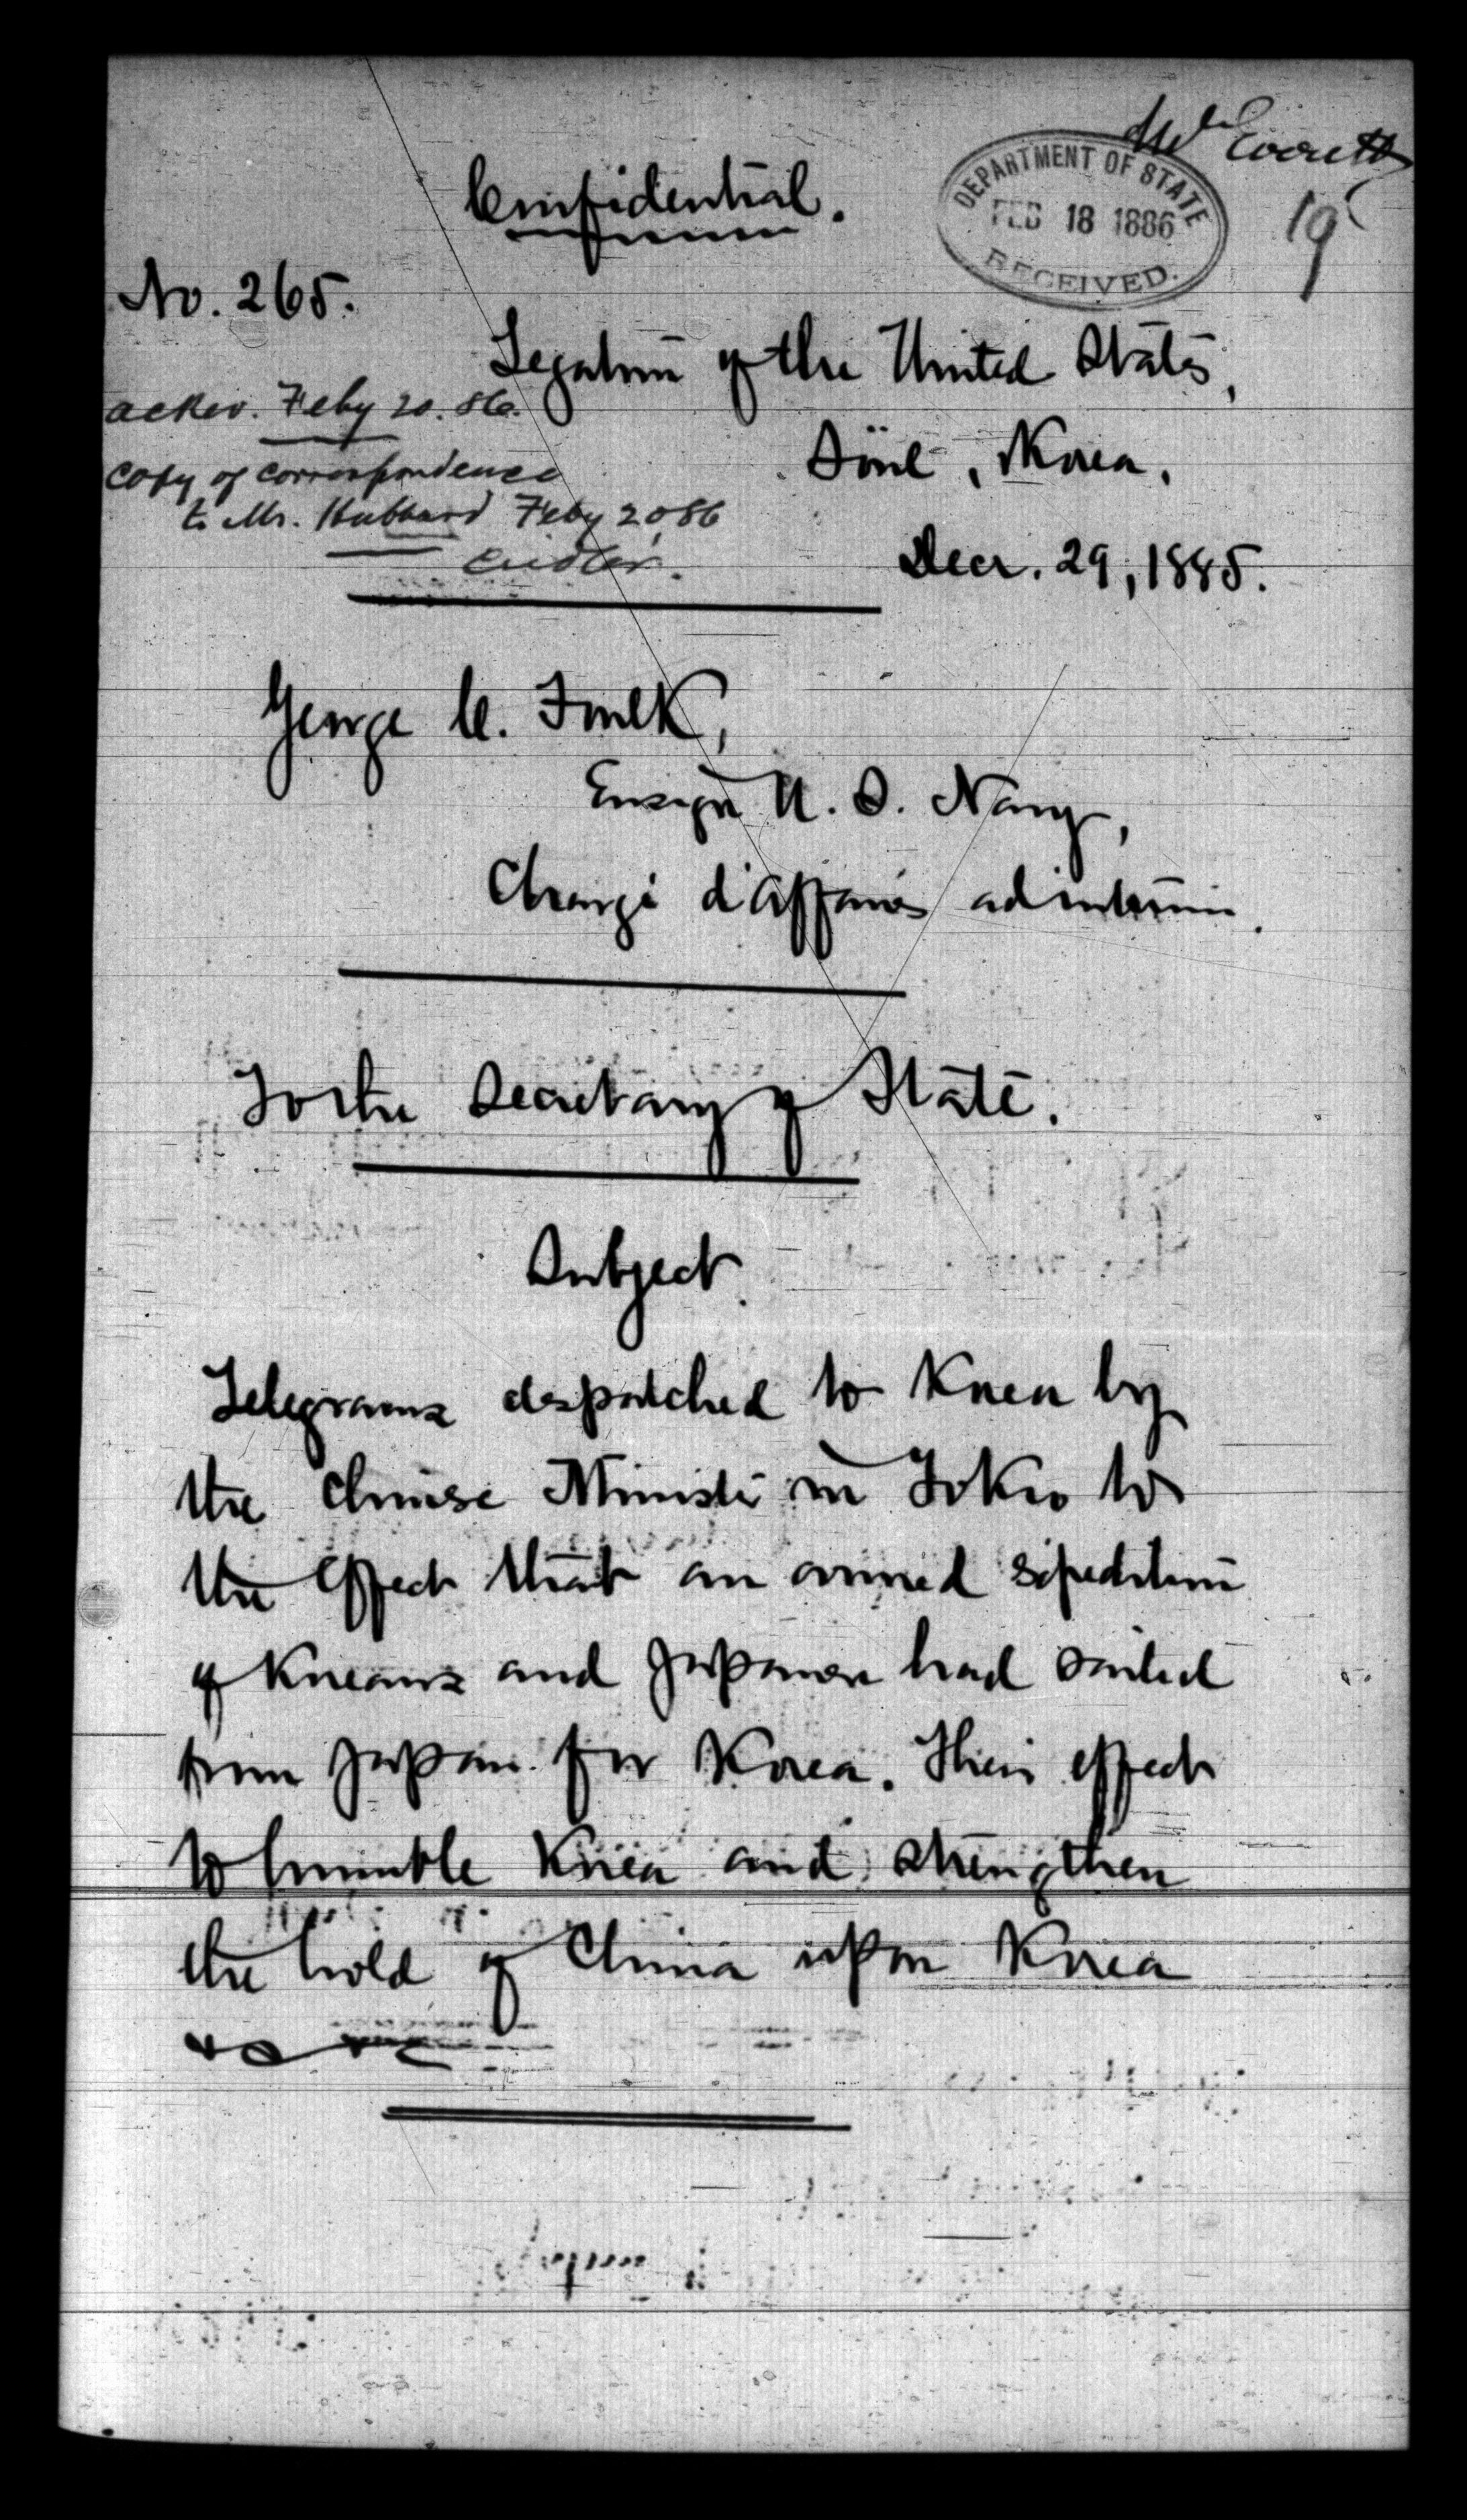 Mr Everett
DEPARTMENT OF STATE
FEB 18 1886
RECEIVED.
19
Confidential.
No. 265.
Legation of the United States,
Söul, Korea,
Decr. 29, 1885.
Feby 20. 86.
Copy of correspondence
to Mr. Hubbard Feby 20 86
George C. Foulk,
Ensign U. S. Navy,
Chargé d'Affaires ad interim.
To the Secretary of State.
Subject.
Telegrams despatched to Korea by
the Chinese Minister in Tokio to
the effect that an armed expedition
of Koreans and Japanese had sailed
from Japan for Korea. Their effect
to humble Korea and strengthen
the hold of China upon Korea